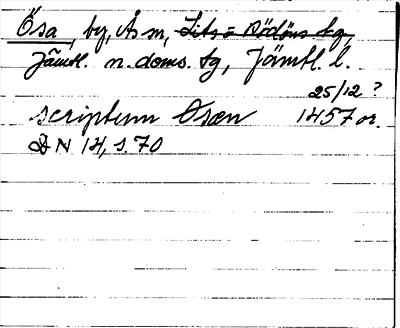 Ösa, by, Ås sn, Lits o Rödöns tg,
Jämtl. n. doms. tg, Jämtl. l.
25/12 ?
scriptum Osæn 1457 or.
DN 14, s. 70